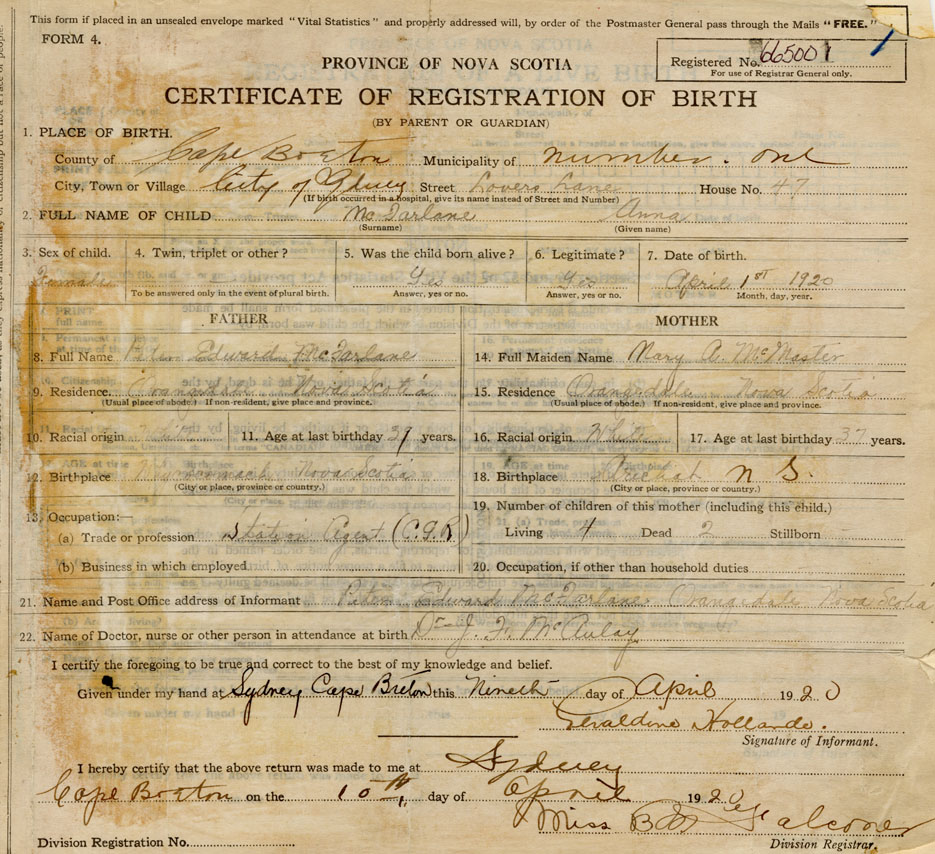 This form if placed in an unsealed envelope marked "Vital Statistics" and properly addressed will, by order of the Postmaster General pass through the Mails "FREE."
FORM 4.
Registered No. 665001
For use of Registrar General only.
PROVINCE OF NOVA SCOTIA
CERTIFICATE OF REGISTRATION OF BIRTH
(BY PARENT OR GUARDIAN)
1. PLACE OF BIRTH.
County of Cape Breton Municipality of Number. one
City, Town or Village City of Sydney Street Lovers Lane House No. 47
(If birth occurred in a hospital, give its name instead of Street and Number)
2. FULL NAME OF CHILD McFarlane Anna
(Surname) (Given name)
3. Sex of child. 4. Twin, triplet or other? 5. Was the child born alive? 6. Legitimate? 7. Date of birth.
Female Yes Yes April 1st 1920
To be answered only in the event of plural birth. Answer, yes or no. Answer, yes or no. Month, day, year.
FATHER MOTHER
8. Full Name Peter Edward McFarlane 14. Full Maiden Name Mary A. McMaster
9. Residence. Orangedale Nova Scotia 15. Residence Orangedale Nova Scotia
(Usual place of abode.) If non-resident, give place and province. (Usual place of abode.) If non-resident, give place and province.
10. Racial origin White 11. Age at last birthday 39 years. 16. Racial origin White 17. Age at last birthday 37 years.
12. Birthplace Nova Scotia 18. Birthplace Arichat N S.
(City or place, province or country.) (City or place, province or country.)
13. Occupation:— 19. Number of children of this mother (including this child.)
(a) Trade or profession Station Agent (C.G.R) Living 4 Dead 2 Stillborn
(b) Business in which employed 20. Occupation, if other than household duties
21. Name and Post Office address of Informant Peter Edward McFarlane Orangedale Nova Scotia
22. Name of Doctor, nurse or other person in attendance at birth Dr J. McAulay
I certify the foregoing to be true and correct to the best of my knowledge and belief.
Given under my hand at Sydney Cape Breton this Nineth day of April 1920
Geraldine Hollande.
Signature of Informant.
I hereby certify that the above return was made to me at Sydney
Cape Breton on the 10th day of April 1920
Miss Falconer
Division Registration No. Division Registrar.